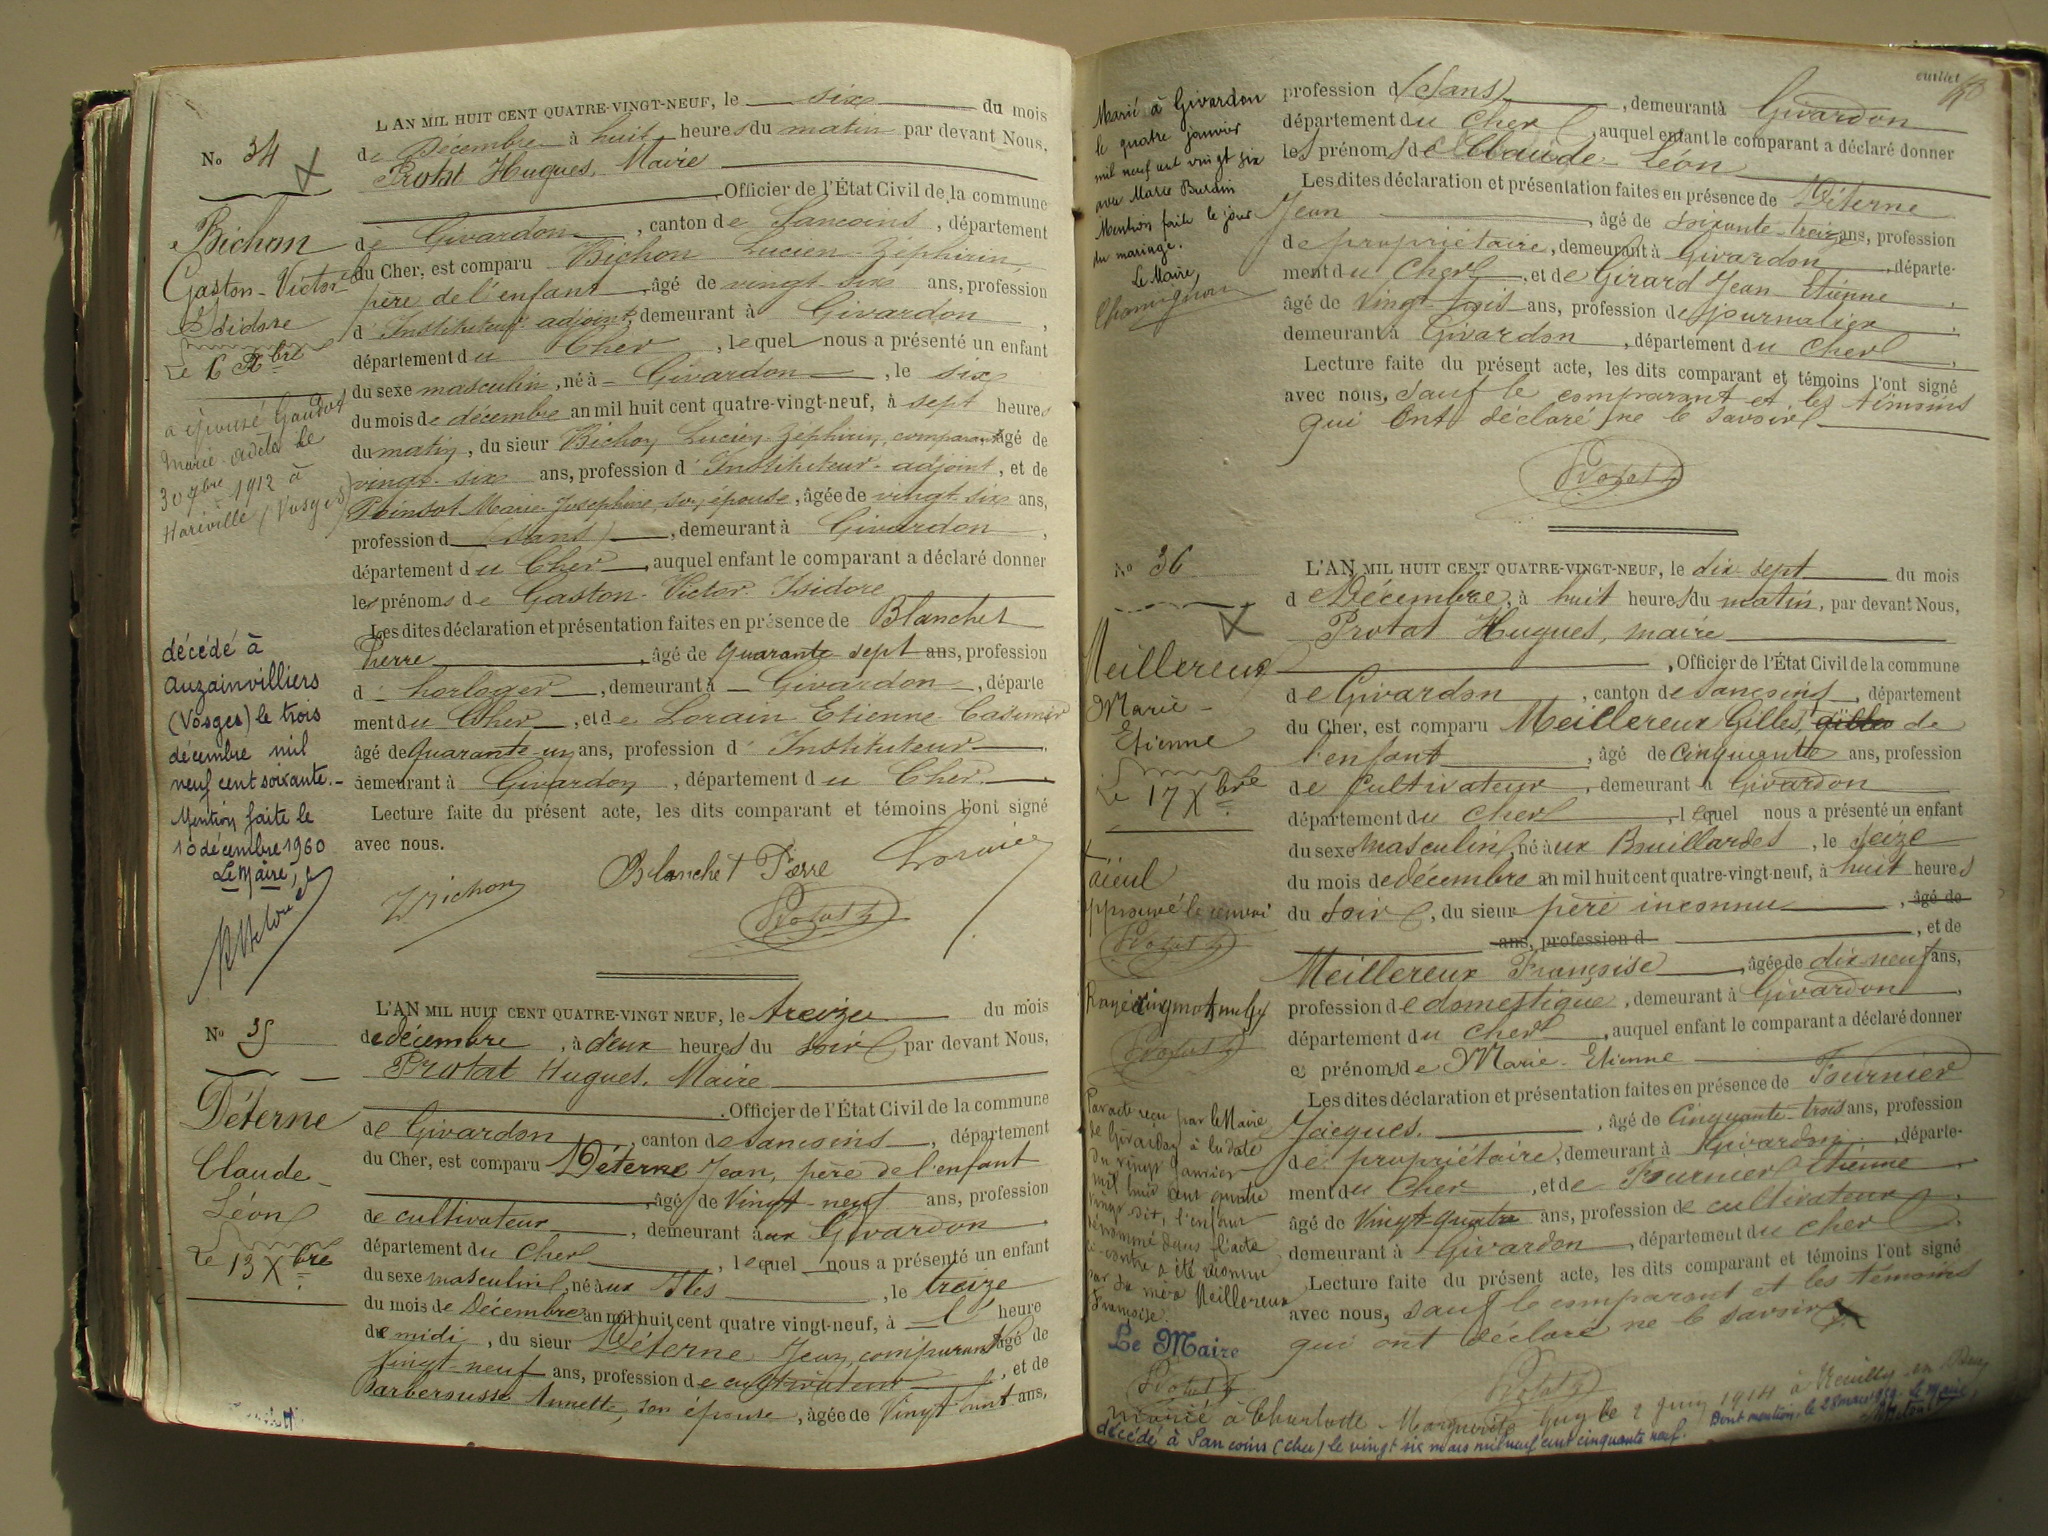 No 34
Bichon
Gaston-Victor
Isidore
Le 6 Xbre
a épousé Gaudot
Marie-Adèle le
30 9bre 1912 à
Haréville (Vosges)
décédé à
Auzainvilliers
(Vosges) le trois
décembre mil
neuf cent soixante.-
Mention faite le
10 décembre 1960
Le Maire,
L'AN MIL HUIT CENT QUATRE-VINGT-NEUF, le six du mois
de Décembre à huit heures du matin par devant Nous,
Protat Hugues, Maire
Officier de l'État Civil de la commune
de Givardon, canton de Sancoins, département
du Cher, est comparu Bichon Lucien Zéphirin,
père de l'enfant, âgé de vingt-six ans, profession
d'Instituteur adjoint, demeurant à Givardon,
département du Cher, lequel nous a présenté un enfant
du sexe masculin, né à Givardon, le six
du mois de décembre an mil huit cent quatre-vingt-neuf, à sept heures
du matin, du sieur Bichon Lucien Zéphirin, comparant, âgé de
vingt-six ans, profession d'Instituteur-adjoint, et de
Poinsot Marie-Joséphine, son épouse, âgée de vingt-six ans,
profession d (sans), demeurant à Givardon,
département du Cher, auquel enfant le comparant a déclaré donner
les prénoms de Gaston-Victor-Isidore
Les dites déclaration et présentation faites en présence de Blanchet
Pierre, âgé de quarante-sept ans, profession
d'horloger, demeurant à Givardon, départe
ment du Cher, et de Lorain Etienne Casimir
âgé de quarante-un ans, profession d'Instituteur,
demeurant à Givardon, département du Cher.
Lecture faite du présent acte, les dits comparant et témoins l'ont signé
avec nous.
Blanchet Pierre Lorain
L. Bichon
Protat h
No 35
Déterne
Claude-
Léon
Le 13 Xbre
L'AN MIL HUIT CENT QUATRE-VINGT NEUF, le treize du mois
de décembre, à deux heures du soir par devant Nous,
Protat Hugues, Maire
Officier de l'État Civil de la commune
de Givardon, canton de Sancoins, département
du Cher, est comparu Déterne Jean, père de l'enfant
âgé de vingt-neuf ans, profession
de cultivateur, demeurant à Givardon
département du Cher, lequel nous a présenté un enfant
du sexe masculin, né aux Iles, le treize
du mois de Décembre an mil huit cent quatre vingt-neuf, à heure
de midi, du sieur Déterne Jean, comparant âgé de
vingt-neuf ans, profession de cultivateur, et de
Barberousse Annette, son épouse, âgée de vingt huit ans,
feuillet
Marié à Givardon
le quatre janvier
mil neuf cent vingt six
avec Marie Burdin
Mention faite le jour
du mariage.
Le Maire,
profession d (Sans), demeurant à Givardon
département du Cher, auquel enfant le comparant a déclaré donner
les prénoms de Claude-Léon
Les dites déclaration et présentation faites en présence de Déterne
Jean, âgé de soixante-treize ans, profession
de propriétaire, demeurant à Givardon, départe-
ment du Cher, et de Girard Jean Etienne,
âgé de vingt-trois ans, profession de journalier,
demeurant à Givardon, département du Cher.
Lecture faite du présent acte, les dits comparant et témoins l'ont signé
avec nous, sauf le comparant et les témoins
qui ont déclaré ne le savoir
Protat h
No 36
Meillereux
Marie-
Etienne
Le 17 Xbre
l'aïeul
approuvé le renvoi
Protat h
Rayé cinq mots nuls
Protat h
Par acte reçu par le Maire
de Givardon à la date
du vingt janvier
mil huit cent quatre
vingt dix, l'enfant
dénommé dans l'acte
ci-contre a été reconnu
par sa mère Meillereux
Françoise.
Le Maire
Protat h
L'AN MIL HUIT CENT QUATRE-VINGT-NEUF, le dix-sept du mois
de Décembre, à huit heures du matin, par devant Nous,
Protat Hugues, maire
Officier de l'État Civil de la commune
de Givardon, canton de Sancoins, département
du Cher, est comparu Meillereux Gilles, de
l'enfant, âgé de cinquante ans, profession
de cultivateur, demeurant à Givardon
département du Cher, lequel nous a présenté un enfant
du sexe masculin, né aux Bruillardes, le seize
du mois de décembre an mil huit cent quatre-vingt-neuf, à huit heures
du soir, du sieur père inconnu, âgé de
ans, profession d, et de
Meillereux Françoise, âgée de dix-neuf ans,
profession de domestique, demeurant à Givardon,
département du Cher, auquel enfant le comparant a déclaré donner
es prénoms de Marie-Etienne
Les dites déclaration et présentation faites en présence de Fournier
Jacques, âgé de cinquante-trois ans, profession
de propriétaire, demeurant à Givardon, départe-
ment du Cher, et de Fournier Etienne
âgé de vingt-quatre ans, profession de cultivateur,
demeurant à Givardon, département du Cher
Lecture faite du présent acte, les dits comparant et témoins l'ont signé
avec nous, sauf le comparant et les témoins
qui ont déclaré ne le savoir
Protat h
marié à Charlotte Marguerite Guy le 2 juin 1914 à Neuilly-en-Dun
décédé à Sancoins (Cher) le vingt six mars mil neuf cent cinquante neuf. Dont mention, le 28 mars 1959. Le Maire,